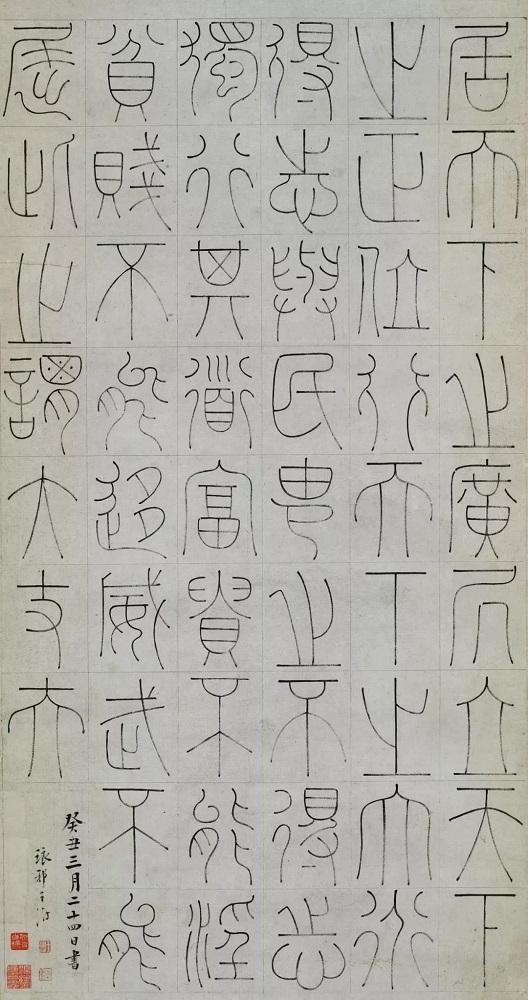 居天下之廣居立天下
之正位行天下之大道
得志與民由之不得志
獨行其道富貴不能淫
貧賤不能移威武不能
屈此之謂大丈夫
癸丑三月二十四日書
琅邪王澍